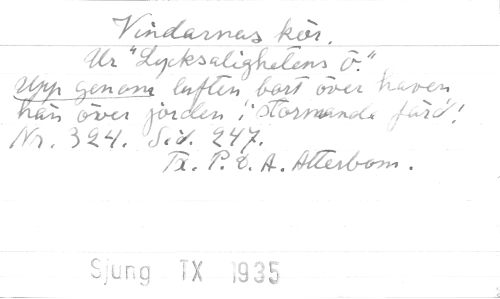 Vindarnas kör.
Ur "Lycksalighetens ö."
Upp genom luften bort över haven
hän över jorden i stormande färd!
Nr. 324. Sid. 247.
Tx. P. D. A. Atterbom.
Sjung TX 1935